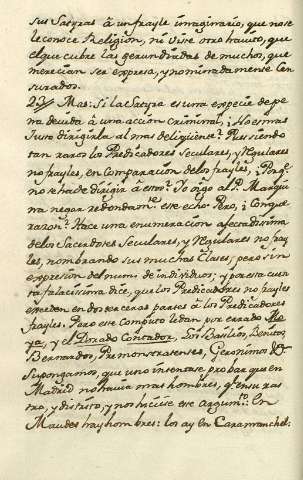 sus Satyras à un frayle imaginario, que no se
le conoce Religion, ni viste otro havito, que
el que cubre las gerundiadas de muchos, que
merecian ser expresa, y nominadamente Cen
surados.
23// Mas: Si la Satyra es una especie de pe
na devida à una acción criminal; No es mas
Justo dirigirla al mas delinquente? Pues siendo
tan raros los Predicadores Seculares, y Regulares
no frayles, en comparacion de los frayles; Porq.e
no se ha de dirigir à estos? Yo oigo al P. Marqui
na negar redondam.te este echo. Pero, ¿Con que
razon? Hace una enumeracion afectadisima
de los Sacerdotes Seculares, y Regulares no fray
les, nombrando sus muchas Clases; pero sin
expresion del num.o de individuos; y por esta cuen
ta falacissima dice, que los Predicadores no frayles
exceden en dos terceras partes à los Predicadores
frayles. Pero este Computo le dan por errado
y el Dorado Contador. Son Basilios, Benitos,
Bernardos, Premonstratenses, Geronimos &.
Supongamos, que uno intentase probar que en
Madrid no havia mas hombres, que en su ras
tro, y distrito, y nos hiciese este argum.to: En
Maudes hay hombres: los ay en Caramanchel: